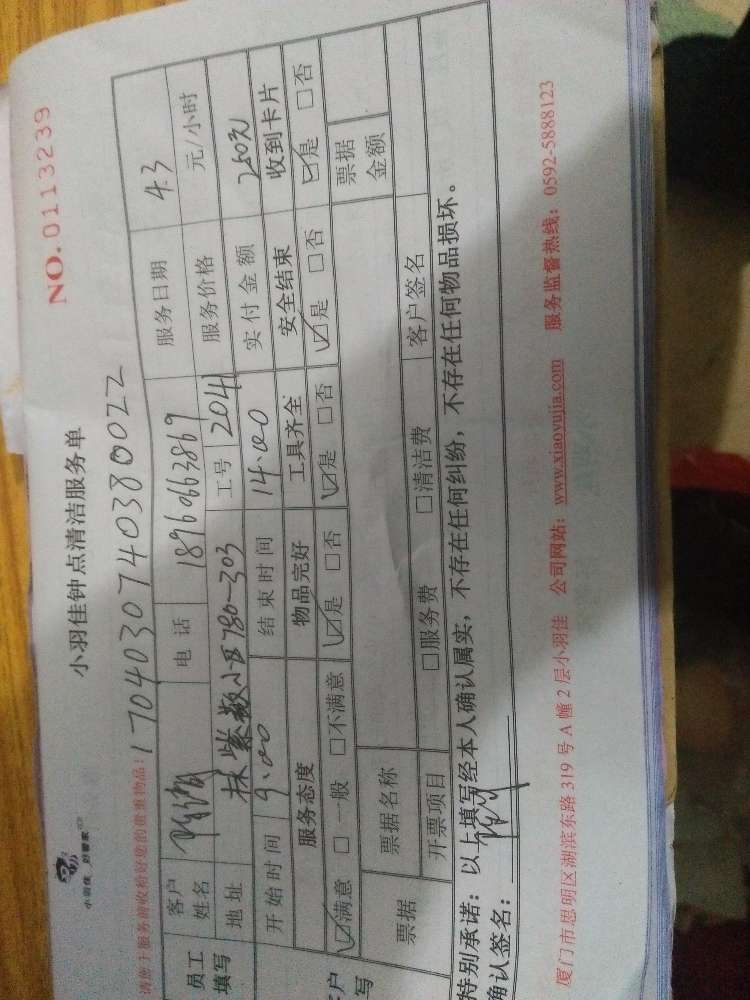 小羽佳 好管家
小羽佳钟点清洁服务单
NO.0113239
请您于服务前收拾好您的贵重物品:17040307403800022
员工填写 客户姓名 电话 18960663869 服务日期 4.3
地址 小区780-303 工号 2041 服务价格 元/小时
开始时间 9.00 结束时间 14.00 实付金额 250元
服务态度 物品完好 工具齐全 安全结束 收到卡片
☑满意 □一般 □不满意 ☑是 □否 ☑是 □否 ☑是 □否 ☑是 □否
票据 票据名称 票据金额
开票项目 □服务费 □清洁费 客户签名
特别承诺:以上填写经本人确认属实,不存在任何纠纷,不存在任何物品损坏。
确认签名:
厦门市思明区湖滨东路319号A幢2层小羽佳 公司网站:www.xiaoyujia.com 服务监督热线:0592-5888123